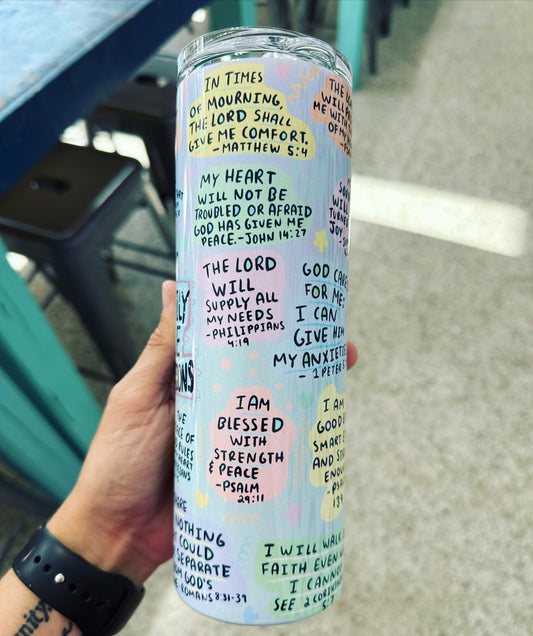 IN TIMES
OF MOURNING,
THE LORD SHALL
GIVE ME COMFORT.
-MATTHEW 5:4
THE
WILL
ME WITH
OF M
MY HEART
WILL NOT BE
TROUBLED OR AFRAID
GOD HAS GIVEN ME
PEACE.-JOHN 14:27
WILL
JOY
THE LORD
WILL
SUPPLY ALL
MY NEEDS
-PHILIPPIANS
4:19
GOD
FOR ME;
I CAN
GIVE HIM
MY
- 1 PETER
I AM
BLESSED
WITH
STRENGTH
& PEACE
-PSALM
29:11
I AM
SMART
AND
THE
OF
RULES
HEART
NOTHING
COULD
SEPARATE
GOD'S
ROMANS 8:31-39
I WILL WALK
FAITH EVEN
I CANNOT
SEE 2
5:7